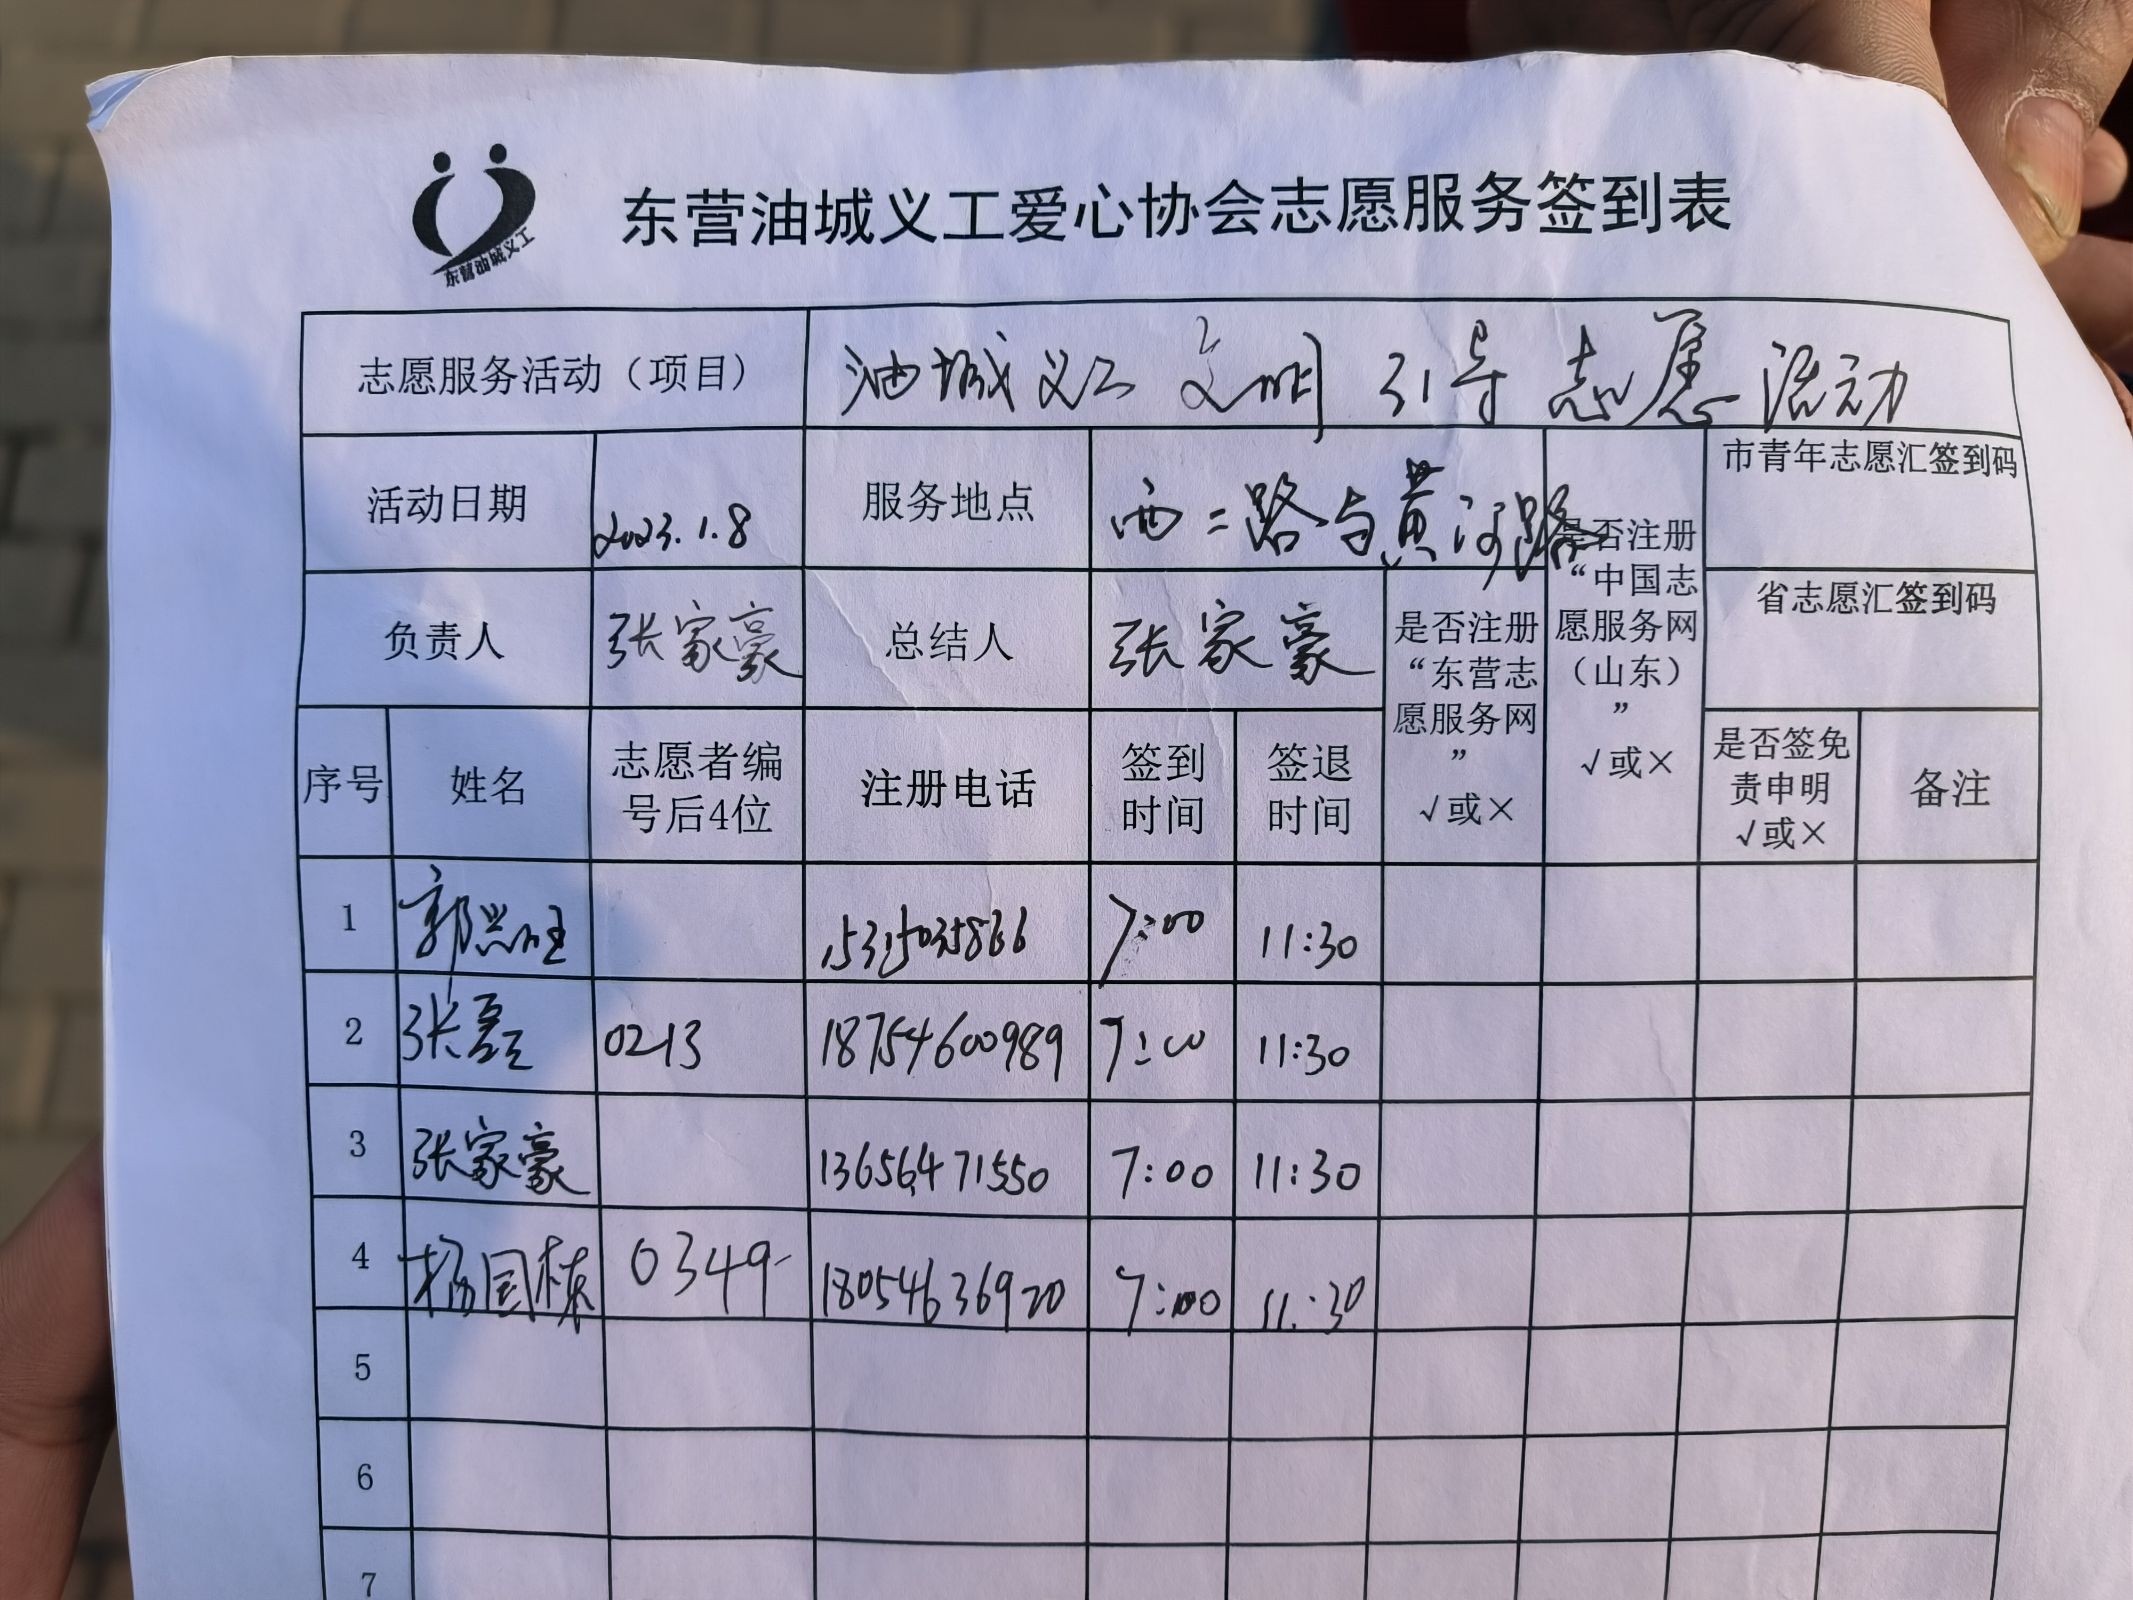 东营油城义工
东营油城义工爱心协会志愿服务签到表
志愿服务活动（项目） 油城义工文明引导志愿活动
活动日期 2023.1.8 服务地点 西二路与黄河路
市青年志愿汇签到码
省志愿汇签到码
负责人 张家豪 总结人 张家豪
是否注册
“东营志
愿服务网
”
√或×
是否注册
“中国志
愿服务网
（山东）
”
√或×
序号 姓名
志愿者编
号后4位
注册电话
签到
时间
签退
时间
是否签免
责申明
√或×
备注
1 郭兴旺 15315035866 7:00 11:30
2 张磊 0213 18754600989 7:00 11:30
3 张家豪 13656471550 7:00 11:30
4 杨国栋 0349 18054636920 7:00 11:30
5
6
7